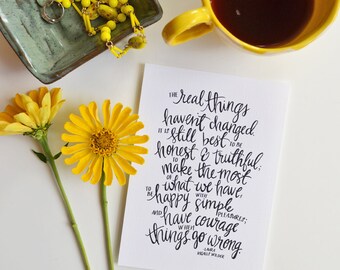 THE real things
haven't changed.
IT IS still best TO BE
honest & truthful;
TO make the most
OF what we have;
TO BE happy WITH simple
PLEASURES;
AND have courage
WHEN things go wrong.
-LAURA
INGALLS WILDER